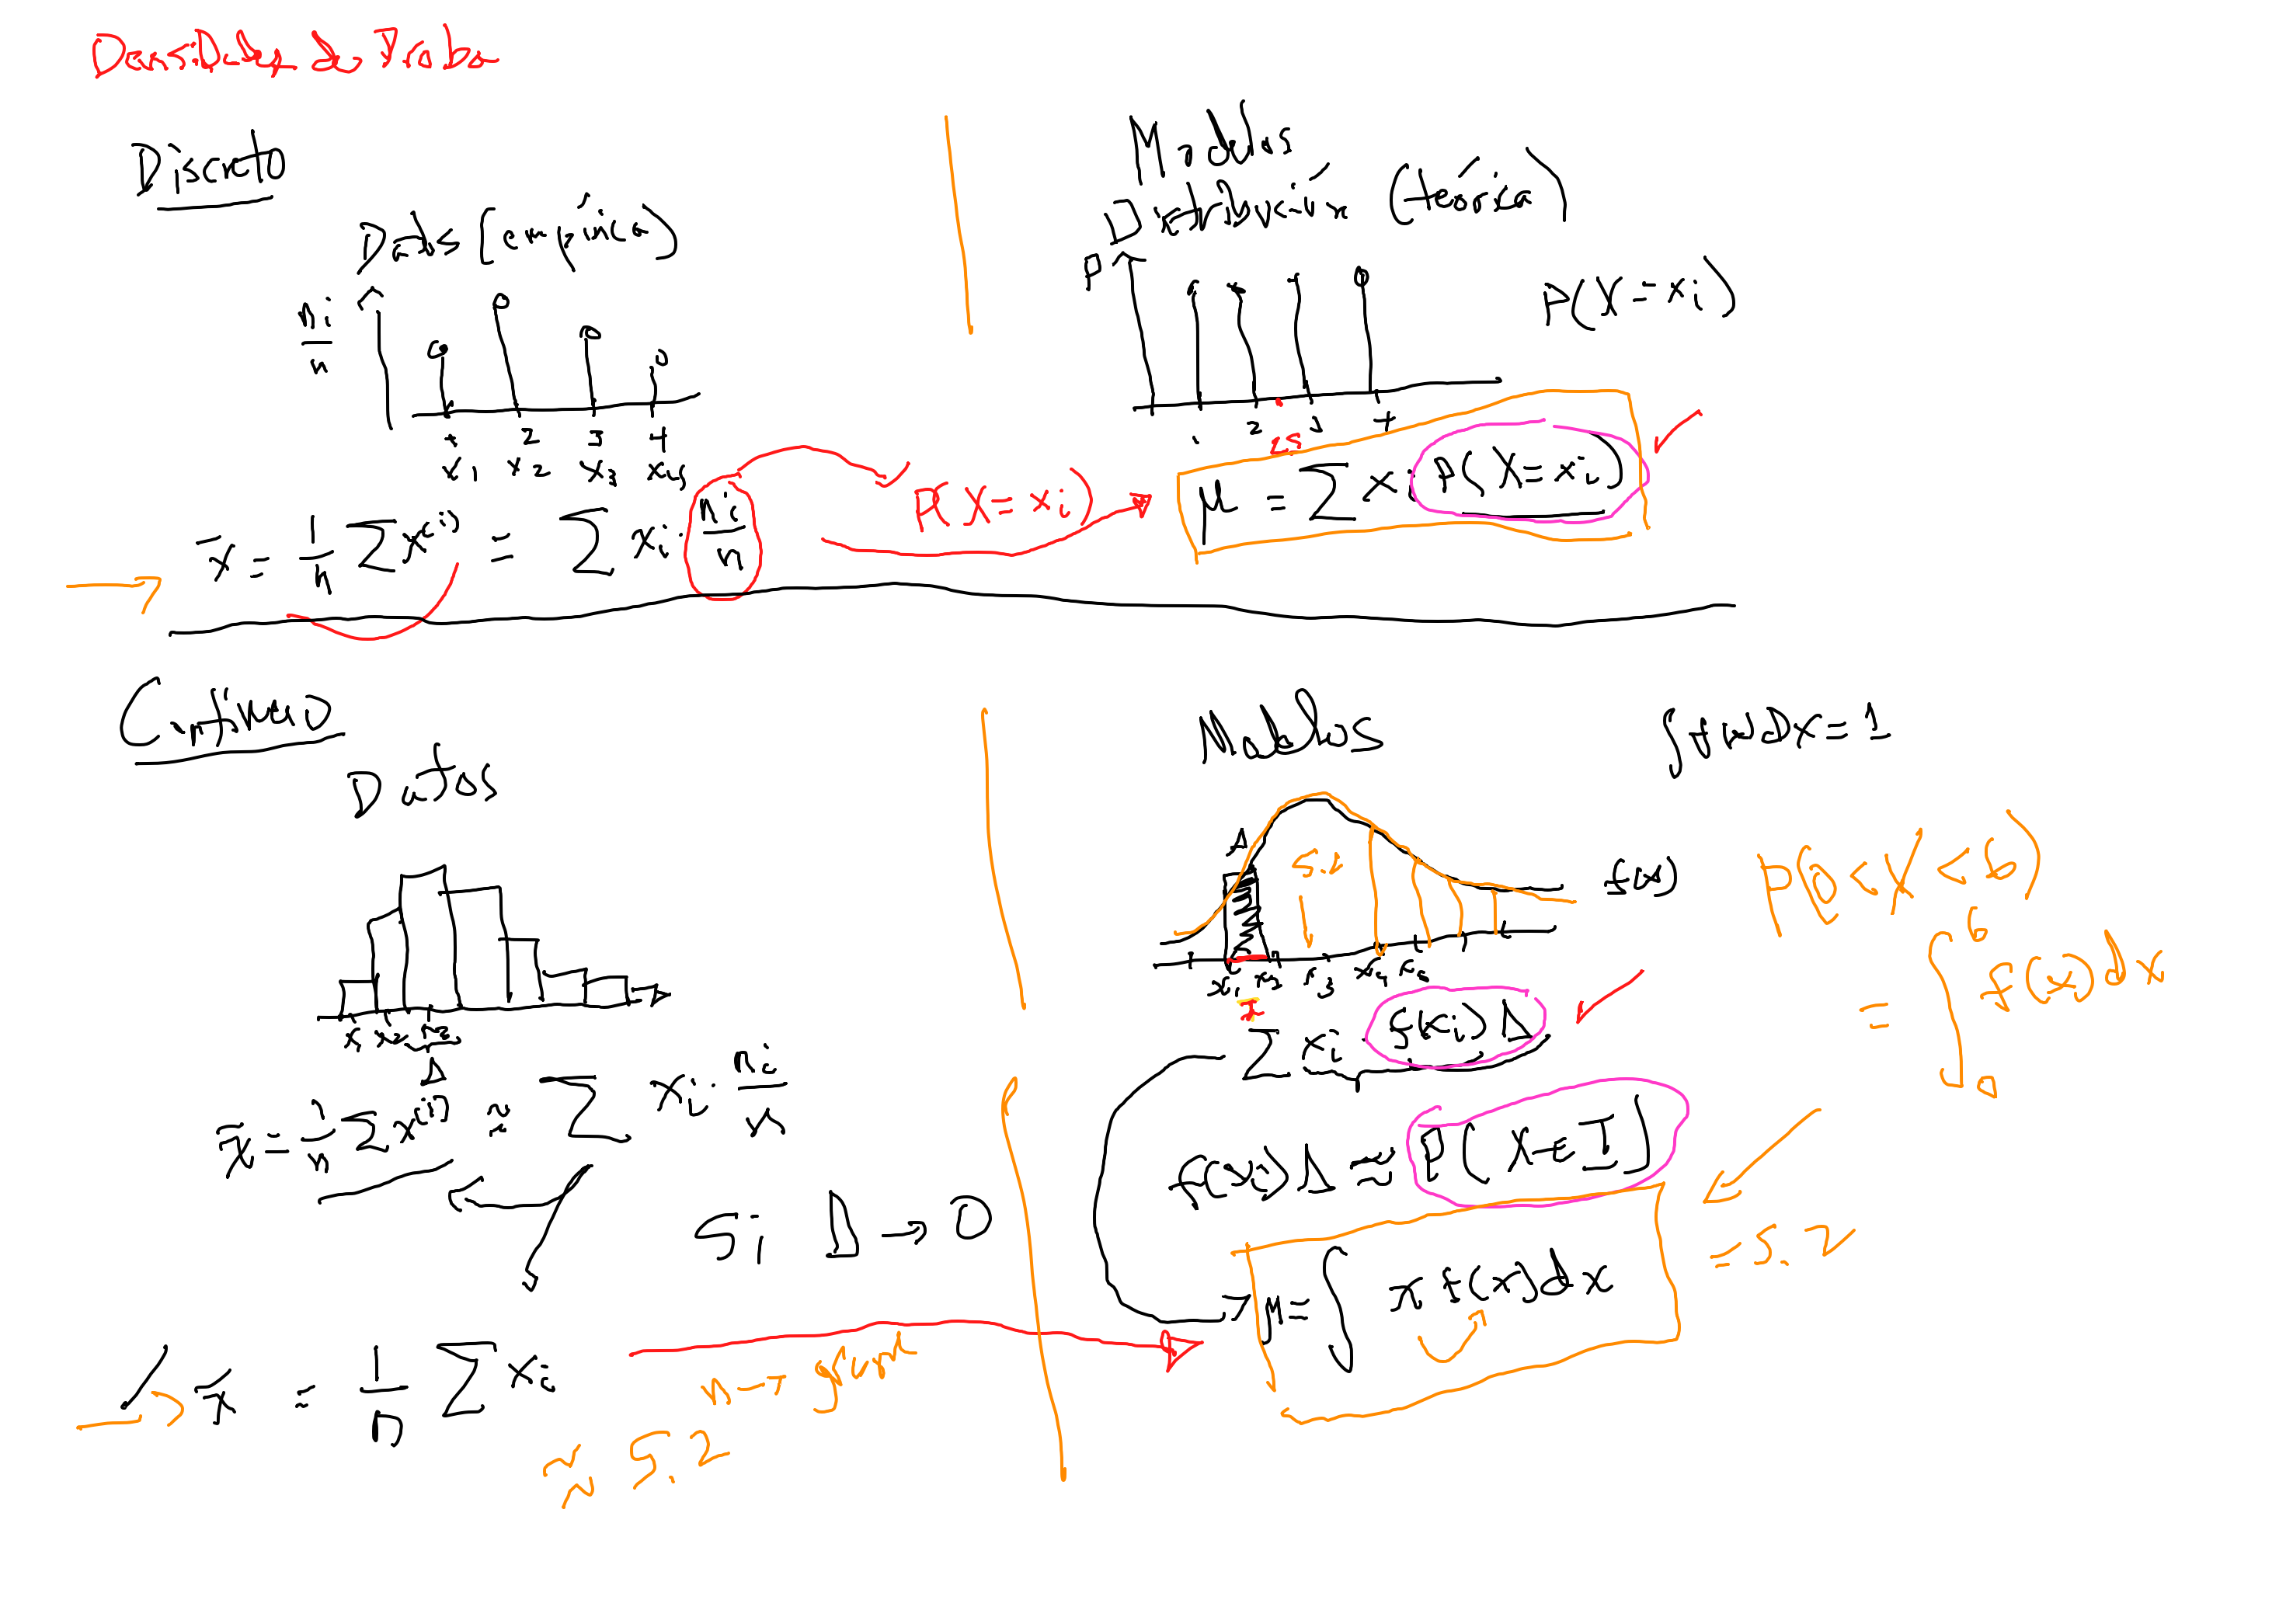 Densidades de Proba
Discreto
Datos (empírica)
n_i/n
1 2 3 4
x_1 x_2 x_3
x̄ = 1/n Σ x^(i) = Σ x_i n_i/n
P(X = x_i)
Modelos
Distribución (teórica)
P
1 2 3 4
2.5
P(X = x_i)
μ = Σ x_i P(X = x_i)
Continuo
Datos
x_1 x_2 x_3
Δ
x̄ = 1/n Σ x^(i) ≈ Σ x_i · n_i/n
Si Δ → 0
x̄ = 1/n Σ x_i
n → grande
≈ 5.2
Modelos
∫ f(x) dx = 1
5.2
f(x)
x_1 x_2 x_3 x_4 x_5
I
Σ x_i · f(x_i) Δ
f(x_i) Δ ≅ P(X ∈ I)
μ = ∫ x f(x) dx
= 5.2
P(a < X < b)
= ∫_a^b f(x) dx